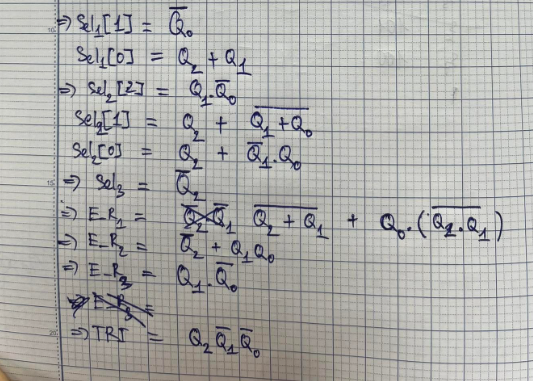 ⇒ Sel₁[1] = Q̅₀
Sel₁[0] = Q₂ + Q₁
⇒ Sel₂[2] = Q₁.Q̅₀
Sel₂[1] = Q₂ + \overline{Q₁+Q₀}
Sel₂[0] = Q₂ + Q̅₁.Q₀
⇒ Sel₃ = Q̅₂
⇒ E_R₁ = \overline{Q₂ + Q₁} + Q₀.(\overline{Q₂.Q₁})
⇒ E_R₂ = Q̅₂ + Q₁Q₀
⇒ E_R₃ = Q₁.Q̅₀
⇒ TRI = Q₂Q̅₁Q̅₀